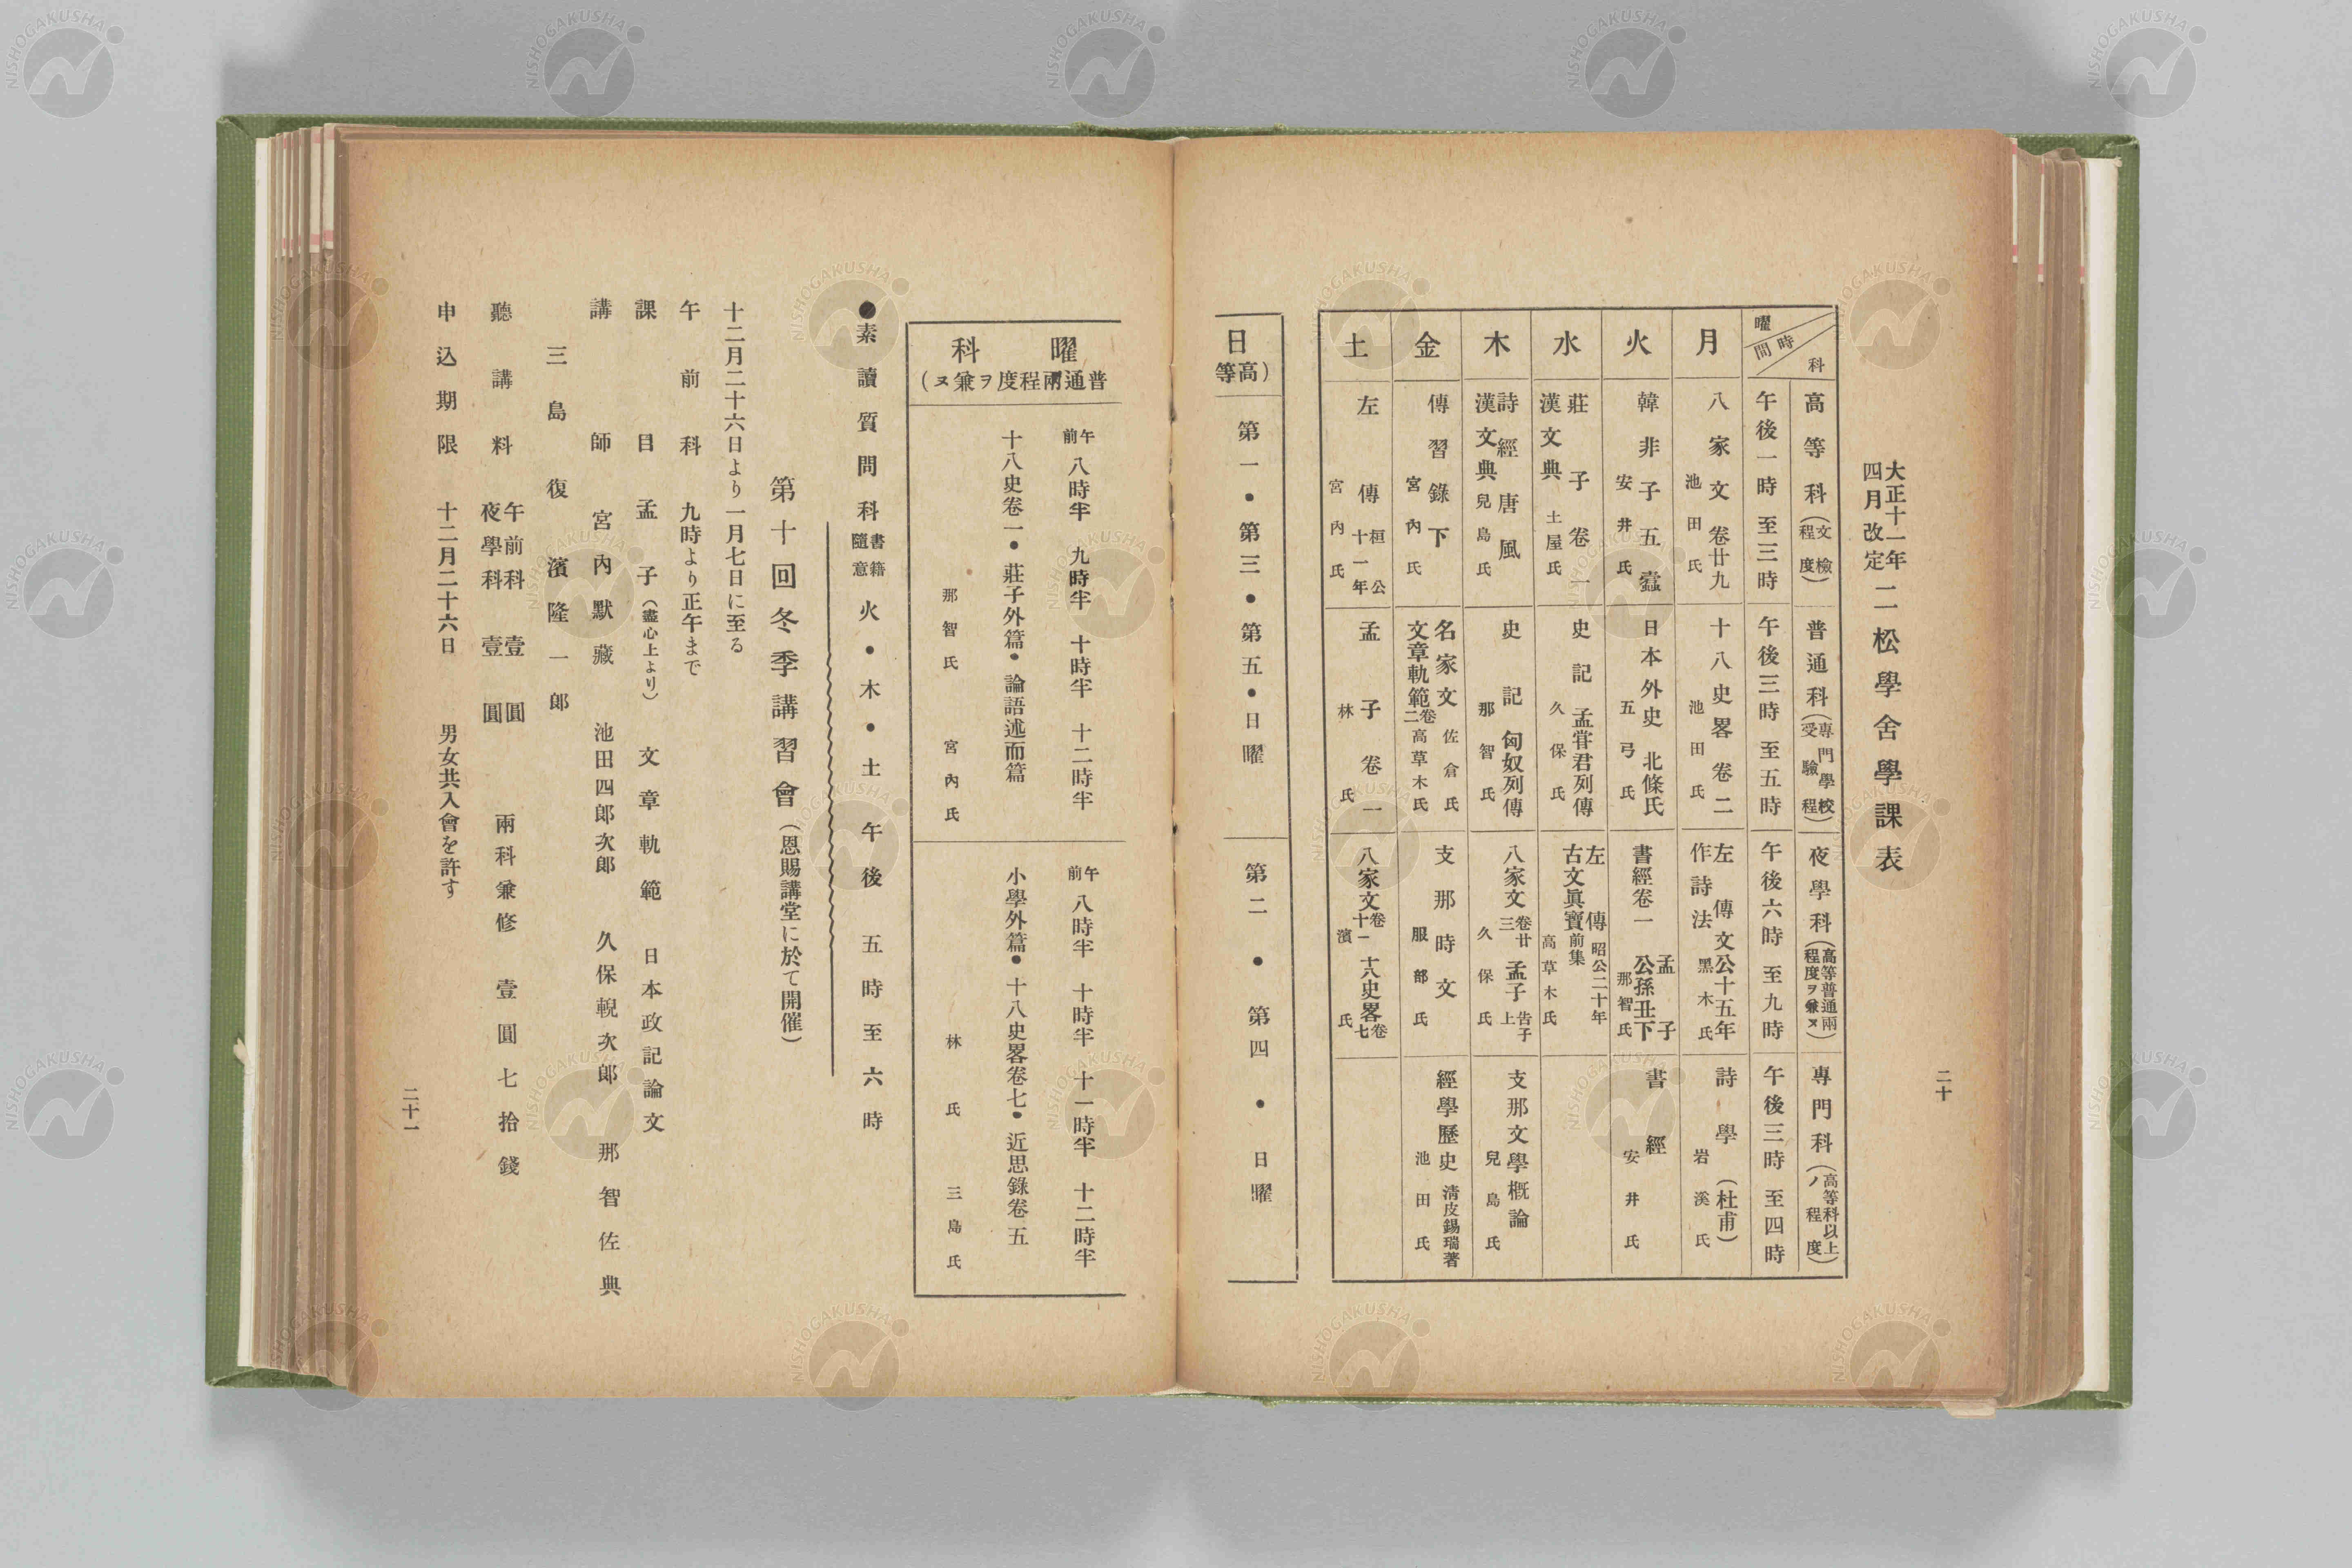 二十
大正十一年四月改定 二松學舍學課表
曜 時間 科
高等科(文檢程度)
普通科(專門學校受驗程度)
夜學科(高等普通兩程度ヲ兼ヌ)
專門科(高等科以上ノ程度)
午後一時至三時
午後三時至五時
午後六時至九時
午後三時至四時
月
八家文卷廿九 池田氏
十八史畧卷二 池田氏
左傳文公十五年 作詩法 黑木氏
詩學(杜甫) 岩溪氏
火
韓非子五蠹 安井氏
日本外史北條氏 五弓氏
書經卷一 孟子公孫丑下 那智氏
書經 安井氏
水
莊子卷一 漢文典 土屋氏
史記孟甞君列傳 久保氏
左傳昭公二十年 古文眞寶前集 高草木氏
木
詩經唐風 漢文典 兒島氏
史記匈奴列傳 那智氏
八家文卷廿三 孟子告子上 久保氏
支那文學概論 兒島氏
金
傳習錄下 宮內氏
名家文 佐倉氏 文章軌範卷二 高草木氏
支那時文 服部氏
經學歷史 清皮錫瑞著 池田氏
土
左傳桓公十一年 宮內氏
孟子卷一 林氏
八家文卷十一 十八史畧卷七 濱氏
日(高等
第一・第三・第五・日曜
第二・第四・日曜
曜科
普通兩程度ヲ兼ヌ)
午前 八時半 九時半 十時半 十二時半
十八史卷一・莊子外篇・論語述而篇
那智氏 宮內氏
午前 八時半 十時半 十一時半 十二時半
小學外篇・十八史畧卷七・近思錄卷五
林氏 三島氏
●素讀質問科 書籍隨意 火・木・土 午後五時至六時
第十回冬季講習會(恩賜講堂に於て開催)
十二月二十六日より一月七日に至る
午前科 九時より正午まで
課目 孟子(盡心上より) 文章軌範 日本政記論文
講師 宮內默藏 池田四郎次郎 久保輗次郎 那智佐典
三島復 濱隆一郎
聽講料 午前科 壹圓 夜學科 壹圓 兩科兼修 壹圓七拾錢
申込期限 十二月二十六日 男女共入會を許す
二十一
NISHOGAKUSHA